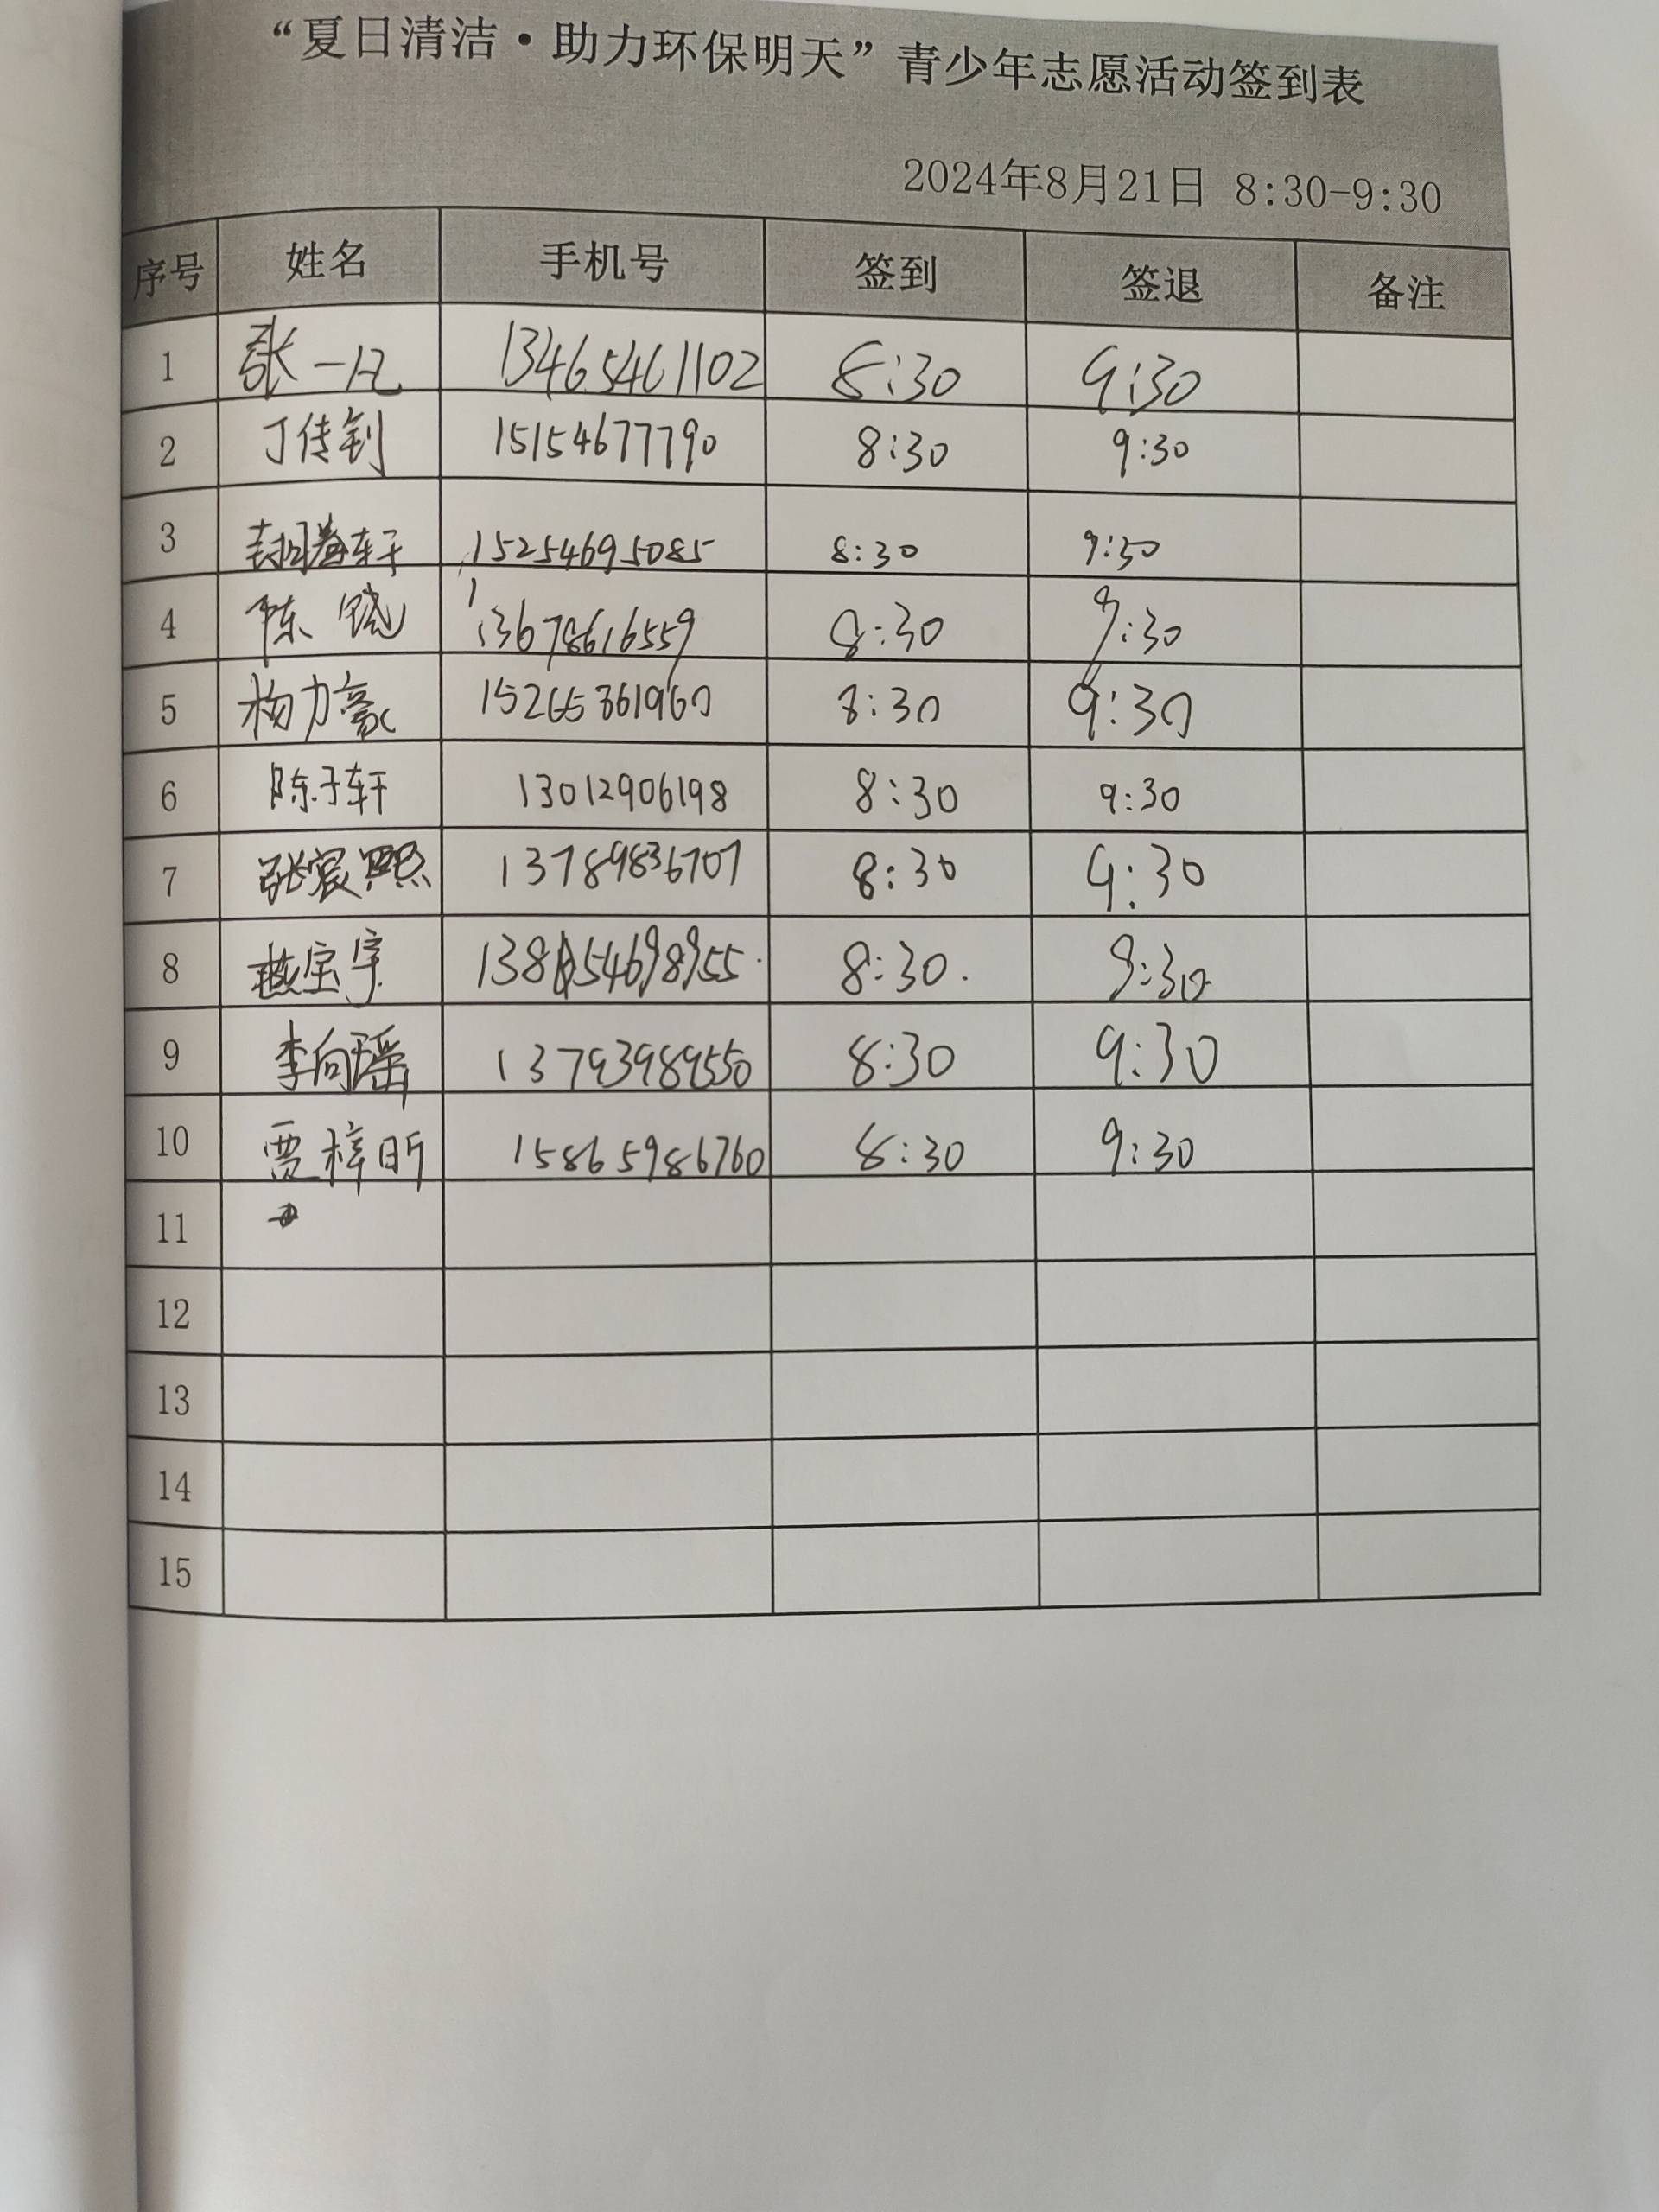 “夏日清洁·助力环保明天”青少年志愿活动签到表
2024年8月21日 8:30-9:30
序号 姓名 手机号 签到 签退 备注
1 张一凡 13465461102 8:30 9:30
2 丁传钊 15154677790 8:30 9:30
3 15254695085 8:30 9:30
4 陈 13678616559 8:30 9:30
5 杨力豪 15265361960 8:30 9:30
6 陈子轩 13012906198 8:30 9:30
7 张宸熙 13789836707 8:30 9:30
8 燕宝宇 8:30 9:30
9 李向瑶 13793989550 8:30 9:30
10 贾梓昕 15865986760 8:30 9:30
11
12
13
14
15